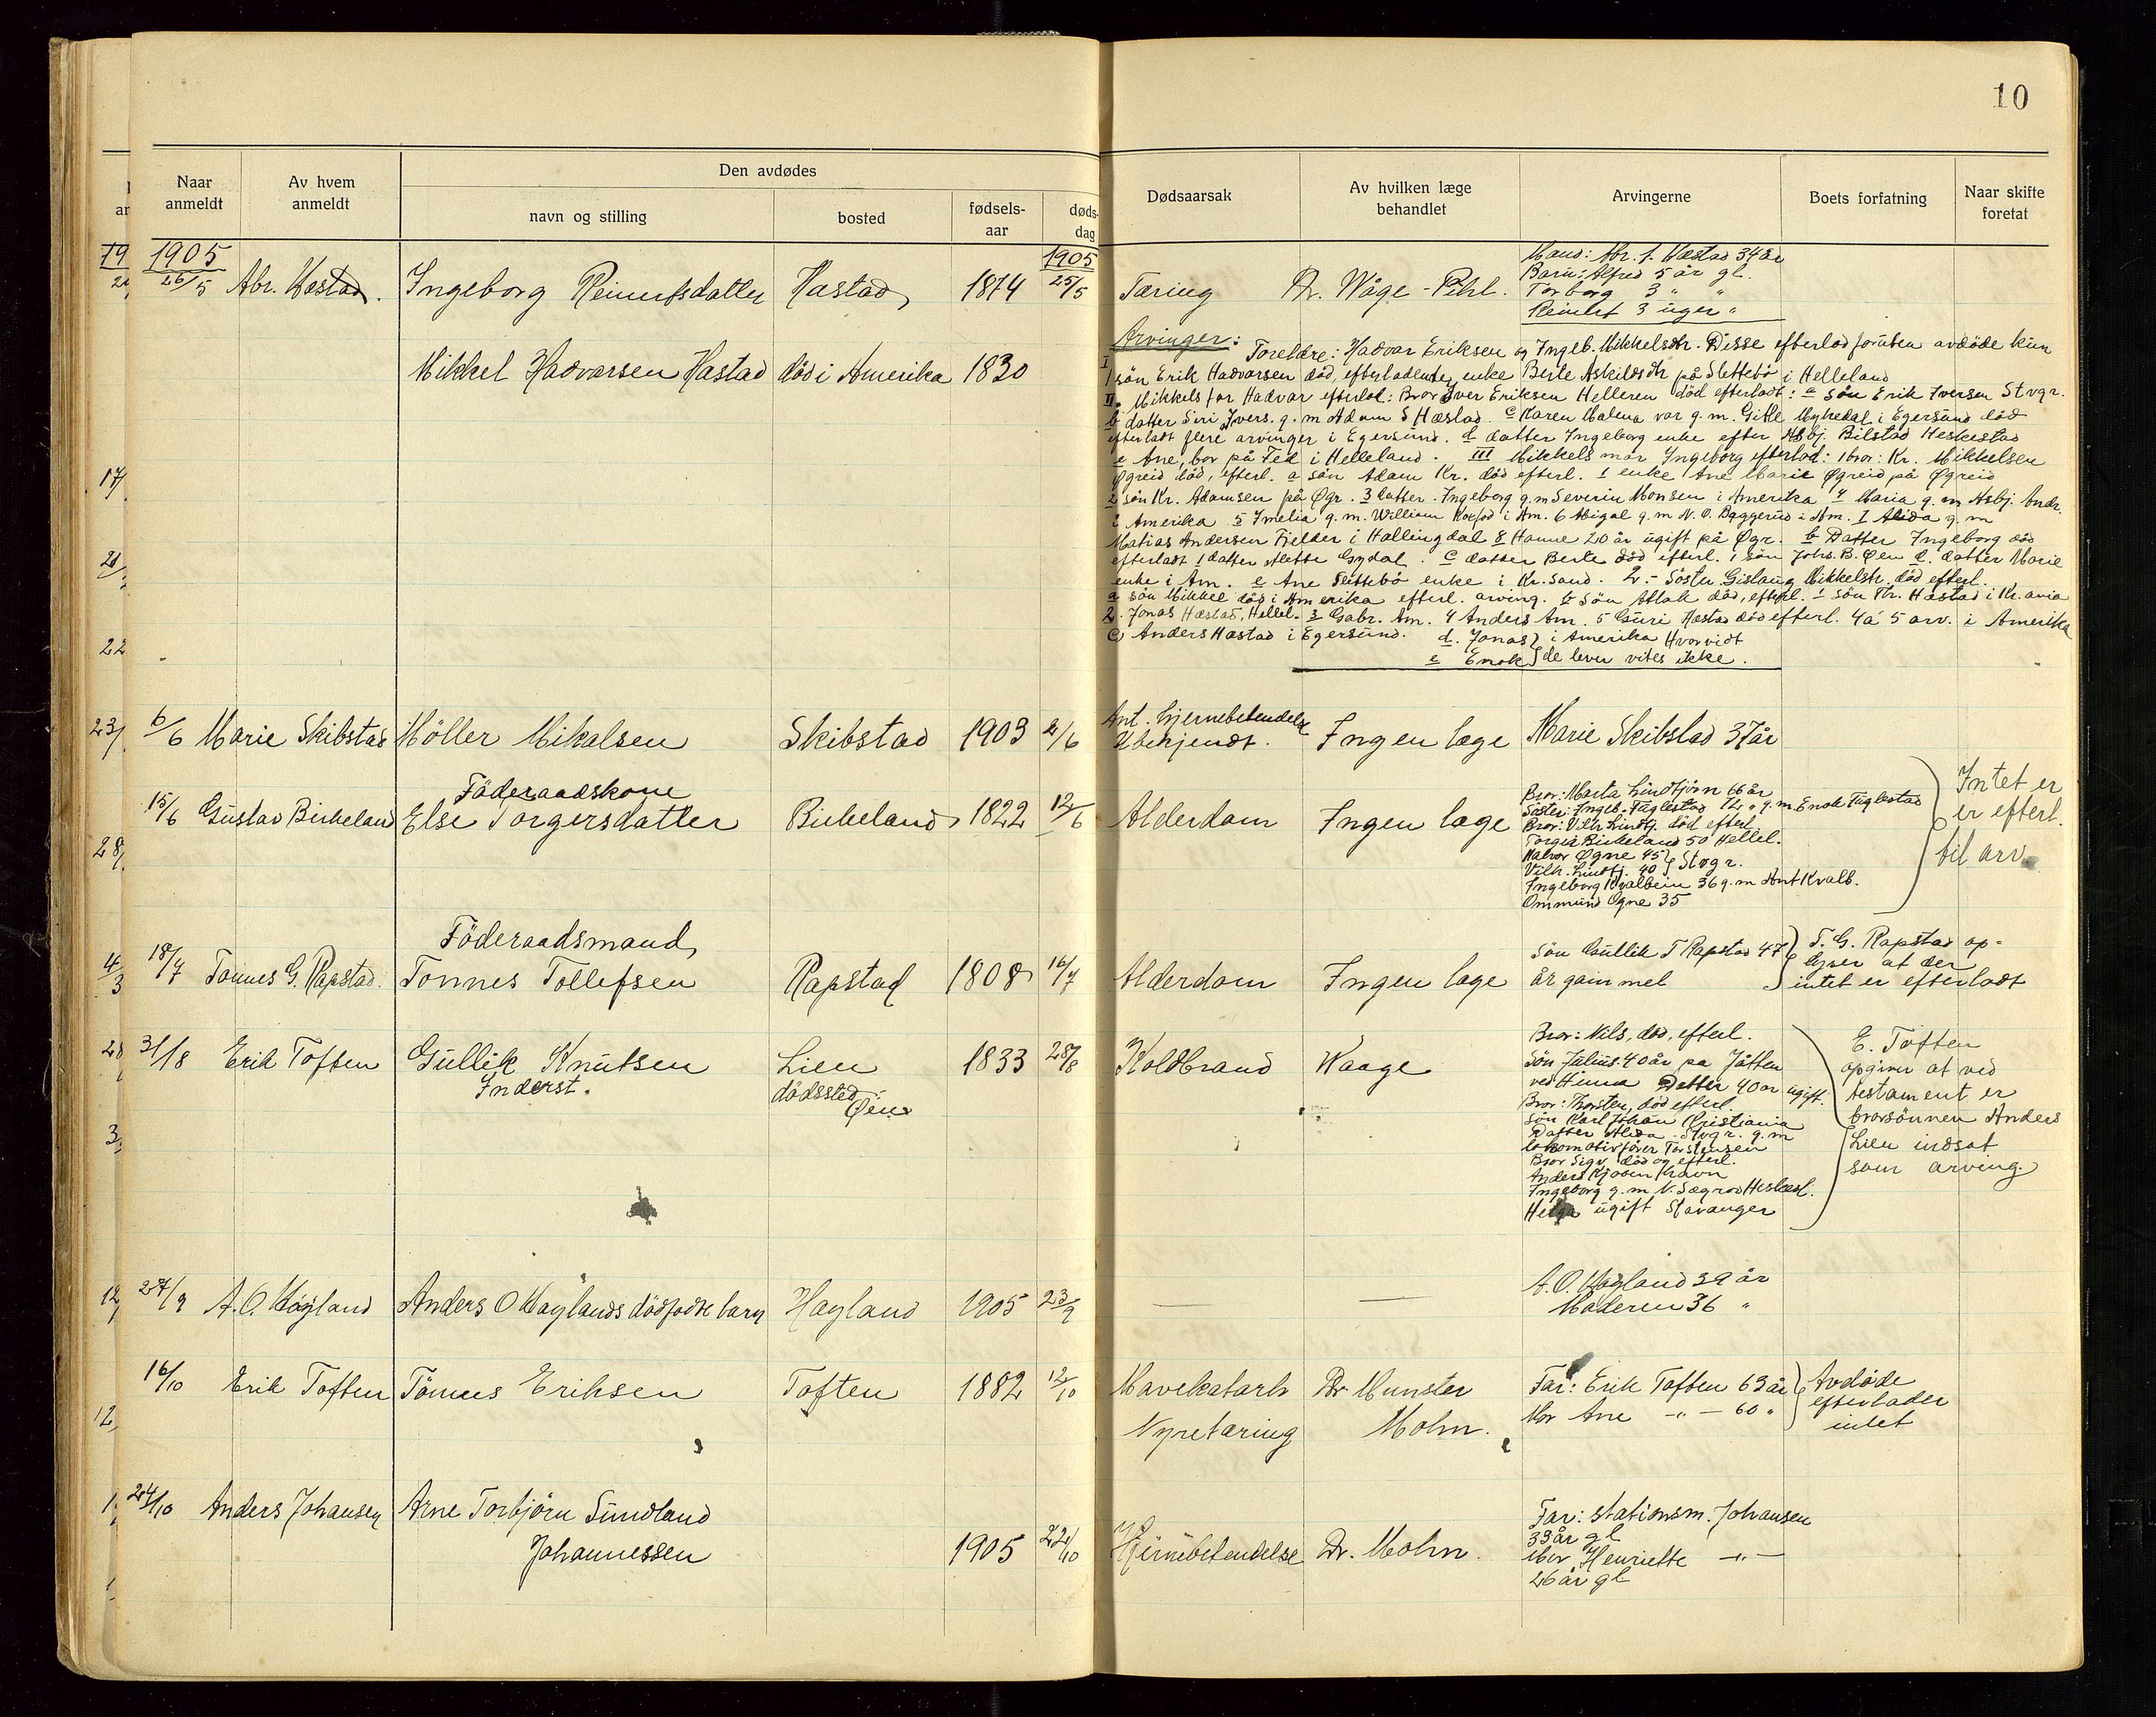 10
Den avdødes
Naar anmeldt
Av hvem anmeldt
navn og stilling
bosted
fødsels-aar
døds-dag
Dødsaarsak
Av hvilken læge behandlet
Arvingerne
Boets forfatning
Naar skifte foretat
1905
26/5 Abr. Hæstad. Ingeborg Reinertsdatter Hæstad 1874 1905 25/5 Tæring Dr. Wåge-Pihl.
Mand: Abr. A. Hæstad 34 år
Barn: Alfred 5 år gl.
Torborg 3 " "
Reinert 3 uger "
Mikkel Hadvarsen Hæstad død i Amerika 1830
Arvinger: Foreldre: Hadvar Eriksen og Ingeb. Mikkelsdtr. Disse efterlod foruten avdøde kun
I 1 søn Erik Hadvarsen død, efterladende enke Berte Askildsdtr på Slettebø i Helleland
II. Mikkels far Hadvar efterlod: Bror Iver Eriksen Helleren død efterladt: a søn Erik Iversen Stvgr.
b datter Siri Ivers. g. m Adam S Hæstad. c Karen Malena var g. m. Gitle Mykedal i Egersund død
efterladt flere arvinger i Egersund. d datter Ingeborg enke efter Asbj. Bilstad Heskestad
e Ane, bor på Fed i Helleland. III Mikkels mor Ingeborg efterlod: 1 bror: Kr. Mikkelsen
Øgreid død, efterl. a søn Adam Kr. død efterl. 1 enke Ane Marie Øgreid på Øgreid
2 søn Kr. Adamsen på Øgr. 3 datter Ingeborg g. m Severin Monsen i Amerika 4 Maria g. m Asbj. Andr.
i Amerika 5 Imelia g. m. William i Am. 6 Abigal g. m N. O. Baggerud i Am. 7 Alida g. m
Matias Andersen Fjelder i Hallingdal 8 Hanne 20 år ugift på Øgr. b Datter Ingeborg død
efterladt 1 datter Alette Gydal. c datter Berte død efterl. 1 søn Johs. B. Øen d. datter Marie
enke i Am. e Ane Slettebø enke i Kr.sand. 2.- Søster Gislaug Mikkelsdtr. død efterl.
a søn Mikkel død i Amerika efterl. arving. b søn Atlak død, efterl. 1 søn Th. Hæstad i Kr.ania
2. Jonas Hæstad, Hellel. 3 Gabr. Am. 4 Anders Am. 5 Guri Hæstad død efterl. 4 á 5 arv. i Amerika
c Anders Hæstad i Egersund. d. Jonas } i Amerika Hvorvidt
e Enok } de lever vites ikke.
6/6 Marie Skibstad Möller Mikalsen Skibstad 1903 2/6
Ant. hjernebetendelse
Ubekjendt. Ingen læge Marie Skibstad 37 år
Føderaadskone
15/6 Gustav Birkeland Else Torgersdatter Birkeland 1822 12/6 Alderdom Ingen læge
Bror: Marta Lindtjørn 66 år
Søster: Ingeb. Fuglestad 72 " g. m. Enok Fuglestad
Bror: Vilh Lindtj. død efterl
Torger Birkeland 50 Hellel.
Halvor Ogne 45 } Stvgr.
Vilh. Lindtj. 40
Ingeborg Kvalbein 36 g. m Ant Kvalb.
Ommund Ogne 35
Intet er
er efterl.
til arv.
Føderaadsmand
18/7 Tønnes G. Rapstad. Tønnes Tollefsen Rapstad 1808 16/7 Alderdom Ingen læge
Søn Gullik T Rapstad 47
år gammel
T. G. Rapstad op-
lyser at der
intet er efterladt
31/8 Erik Toften Gullik Knutsen Lien 1833 28/8 Koldbrand Waage
Inderst.
dødssted:
Øen
Bror: Nils, død, efterl.
Søn Julius 40 år pa Jåtten
ved Hinna Datter 40 år ugift.
Bror: Thorsten, død efterl.
Søn Karl Johan Kristiania
Datter Alida Stvgr. g. m
lokomotivfører Torstensen
Bror Sigv død og efterl.
Anders Kjøbenhavn
Ingeborg g. m N. Sægrov Heskest.
Helga ugift Stavanger
E. Toften
opgiver at ved
testament er
brorsønnen Anders
Lien indsat
som arving.
27/9 A. O. Høyland Anders O Høylands dødfødte barn Høyland 1905 23/9
A. O. Høyland 39 år
Moderen 36 "
16/10 Erik Toften Tönnes Eriksen Toften 1882 12/10
Mavekatarh
Nyretæring
Dr Munster
Holm.
Far: Erik Toften 63 år
Mor Ane -"- 60 "
Avdøde
efterlader
intet
24/10 Anders Johansen Arne Torbjörn Sundland
Johannessen 1905 22/10 Hjernebetendelse Dr. Holm.
Far: stationsm. Johansen
33 år gl
Mor Henriette -"-
26 år gl